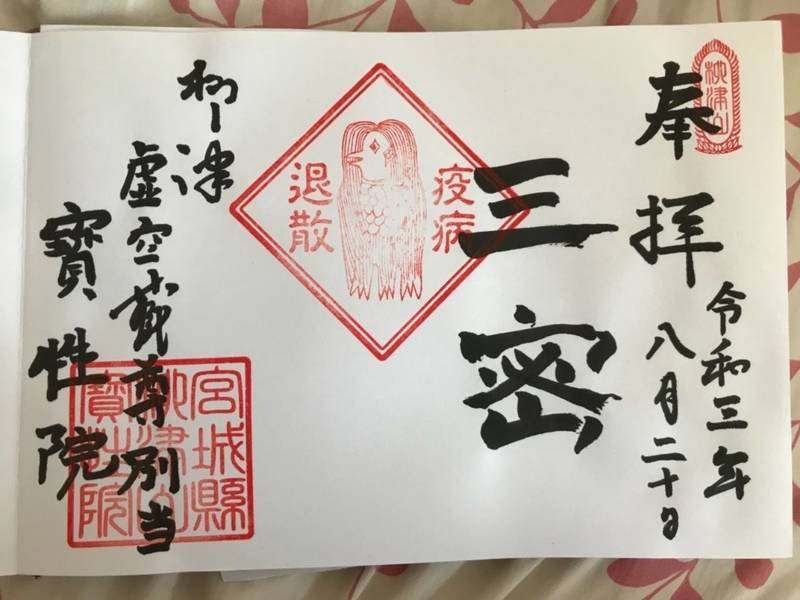 柳津山
奉拝
令和三年
八月二十日
三密
疫病
退散
柳津
虚空蔵尊別当
寳性院
宮城縣
柳津山
寳性院